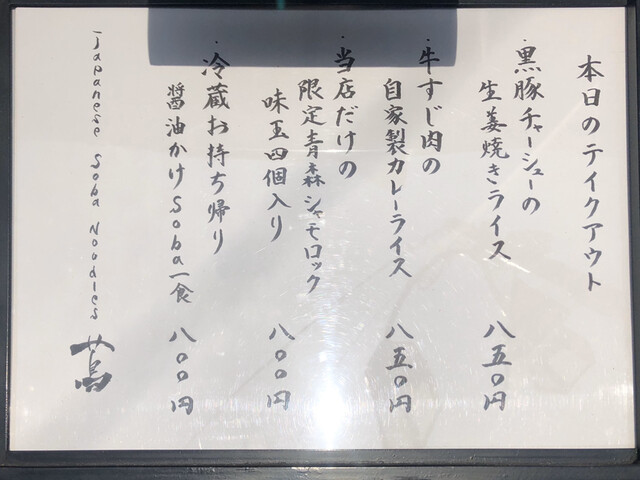 本日のテイクアウト
・黒豚チャーシューの
生姜焼きライス
八五〇円
・牛すじ肉の
自家製カレーライス
八五〇円
・当店だけの
限定青森シャモロック
味玉四個入り
八〇〇円
・冷蔵お持ち帰り
醤油かけSoba一食
八〇〇円
Japanese Soba Noodles 蔦